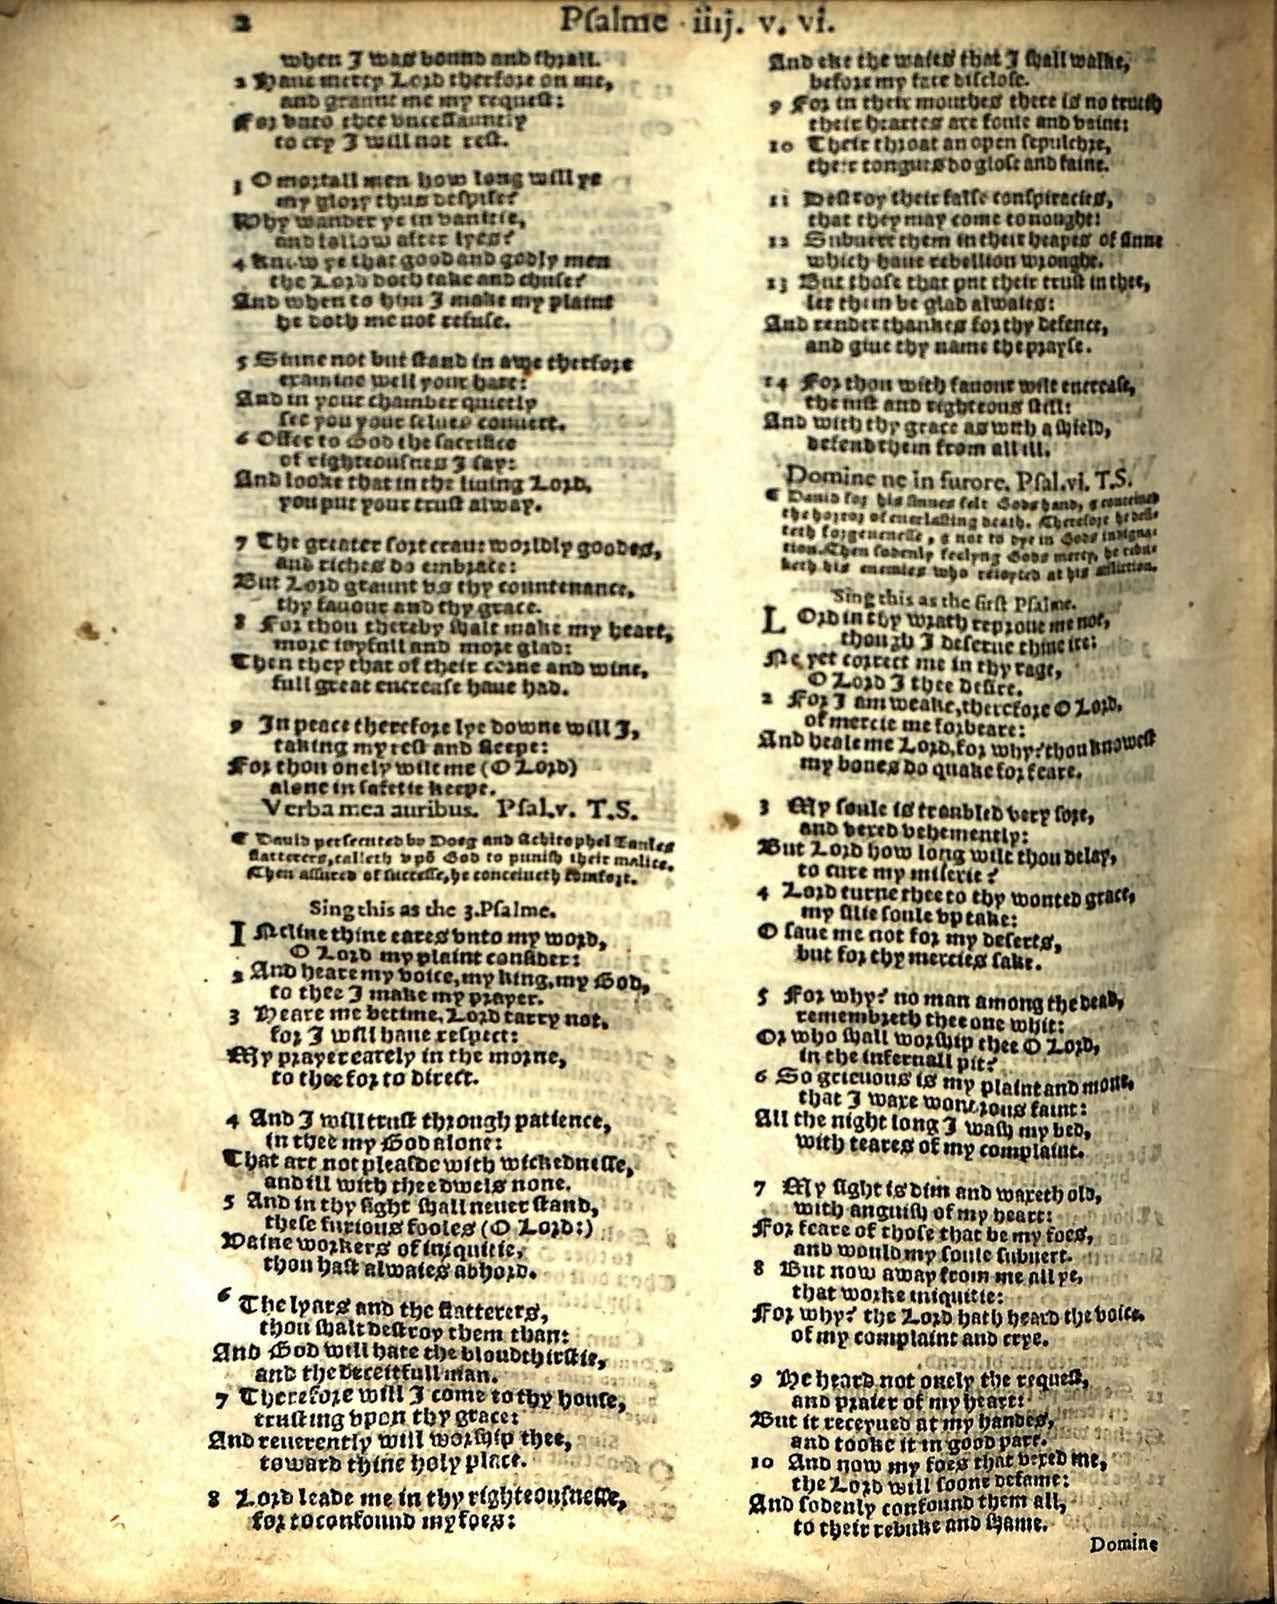 2
Psalme iiij. v. vi.
when I was bound and thrall.
2 Haue mercy Lord therfore on me,
and graunt me my request:
For vnto thee vncessauntly
to cry I will not rest.
3 O mortall men how long will ye
my glory thus despise?
Why wander ye in vanitie,
and follow after lyes?
4 Know ye that good and godly men
the Lord doth take and chuse:
And when to him I make my plaint
he doth me not refuse.
5 Sinne not but stand in awe therfore
examine well your hart:
And in your chamber quietly
see you your selues conuert.
6 Offer to God the sacrifice
of righteousnes I say:
And looke that in the liuing Lord,
you put your trust alway.
7 The greater sort craue worldly goodes,
and riches do embrace:
But Lord graunt vs thy countenance,
thy fauour and thy grace.
8 For thou thereby shalt make my heart,
more ioyfull and more glad:
Then they that of their corne and wine,
full great encrease haue had.
9 In peace therefore lye downe will I,
taking my rest and sleepe:
For thou onely wilt me (O Lord)
alone in safetie keepe.
Verba mea auribus. Psal.v. T.S.
¶ Dauid persecuted by Doeg and Achitophel Saules
flatterers, calleth vpõ God to punish their malice.
Then assured of successe, he conceiueth comfort.
Sing this as the 3.Psalme.
INcline thine eares vnto my word,
O Lord my plaint consider:
2 And heare my voice, my king, my God,
to thee I make my prayer.
3 Heare me betime, Lord tarry not,
for I will haue respect:
My prayer earely in the morne,
to thee for to direct.
4 And I will trust through patience,
in thee my God alone:
That art not pleasde with wickednesse,
and ill with thee dwels none.
5 And in thy sight shall neuer stand,
these furious fooles (O Lord:)
Vaine workers of iniquitie,
thou hast alwaies abhord.
6 The lyars and the flatterers,
thou shalt destroy them than:
And God will hate the bloudthirstie,
and the deceitfull man.
7 Therefore will I come to thy house,
trusting vpon thy grace:
And reuerently will worship thee,
toward thine holy place.
8 Lord leade me in thy righteousnesse,
for to confound my foes:
And eke the waies that I shall walke,
before my face disclose.
9 For in their mouthes there is no truth
their heartes are foule and vaine:
10 Their throat an open sepulchre,
their tongues do glose and faine.
11 Destroy their false conspiracies,
that they may come to nought:
12 Subuert them in their heapes of sinne
which haue rebellion wrought.
13 But those that put their trust in thee,
let them be glad alwaies:
And render thankes for thy defence,
and giue thy name the prayse.
14 For thou with fauour wilt encrease,
the iust and righteous still:
And with thy grace as with a shield,
defend them from all ill.
Domine ne in furore. Psal.vi. T.S.
¶ Dauid for his sinnes felt Gods hand, & conceiued
the horror of euerlasting death. Therefore he desi-
reth forgeuenesse, & not to dye in Gods indigna-
tion. Then sodenly feelyng Gods mercy, he rebu-
keth his enemies who reioyced at his affliction.
Sing this as the first Psalme.
LOrd in thy wrath reproue me not,
though I deserue thine ire:
Ne yet correct me in thy rage,
O Lord I thee desire.
2 For I am weake, therefore O Lord,
of mercie me forbeare:
And heale me Lord, for why? thou knowest
my bones do quake for feare.
3 My soule is troubled very sore,
and vexed vehemently:
But Lord how long wilt thou delay,
to cure my miserie?
4 Lord turne thee to thy wonted grace,
my silie soule vp take:
O saue me not for my deserts,
but for thy mercies sake.
5 For why? no man among the dead,
remembreth thee one whit:
Or who shall worship thee O Lord,
in the infernall pit?
6 So grieuous is my plaint and mone,
that I waxe wondrous faint:
All the night long I wash my bed,
with teares of my complaint.
7 My sight is dim and waxeth old,
with anguish of my heart:
For feare of those that be my foes,
and would my soule subuert.
8 But now away from me all ye,
that worke iniquitie:
For why? the Lord hath heard the voice,
of my complaint and crye.
9 He heard not onely the request,
and praier of my heart:
But it receyued at my handes,
and tooke it in good part.
10 And now my foes that vexed me,
the Lord will soone defame:
And sodenly confound them all,
to their rebuke and shame.
Domine